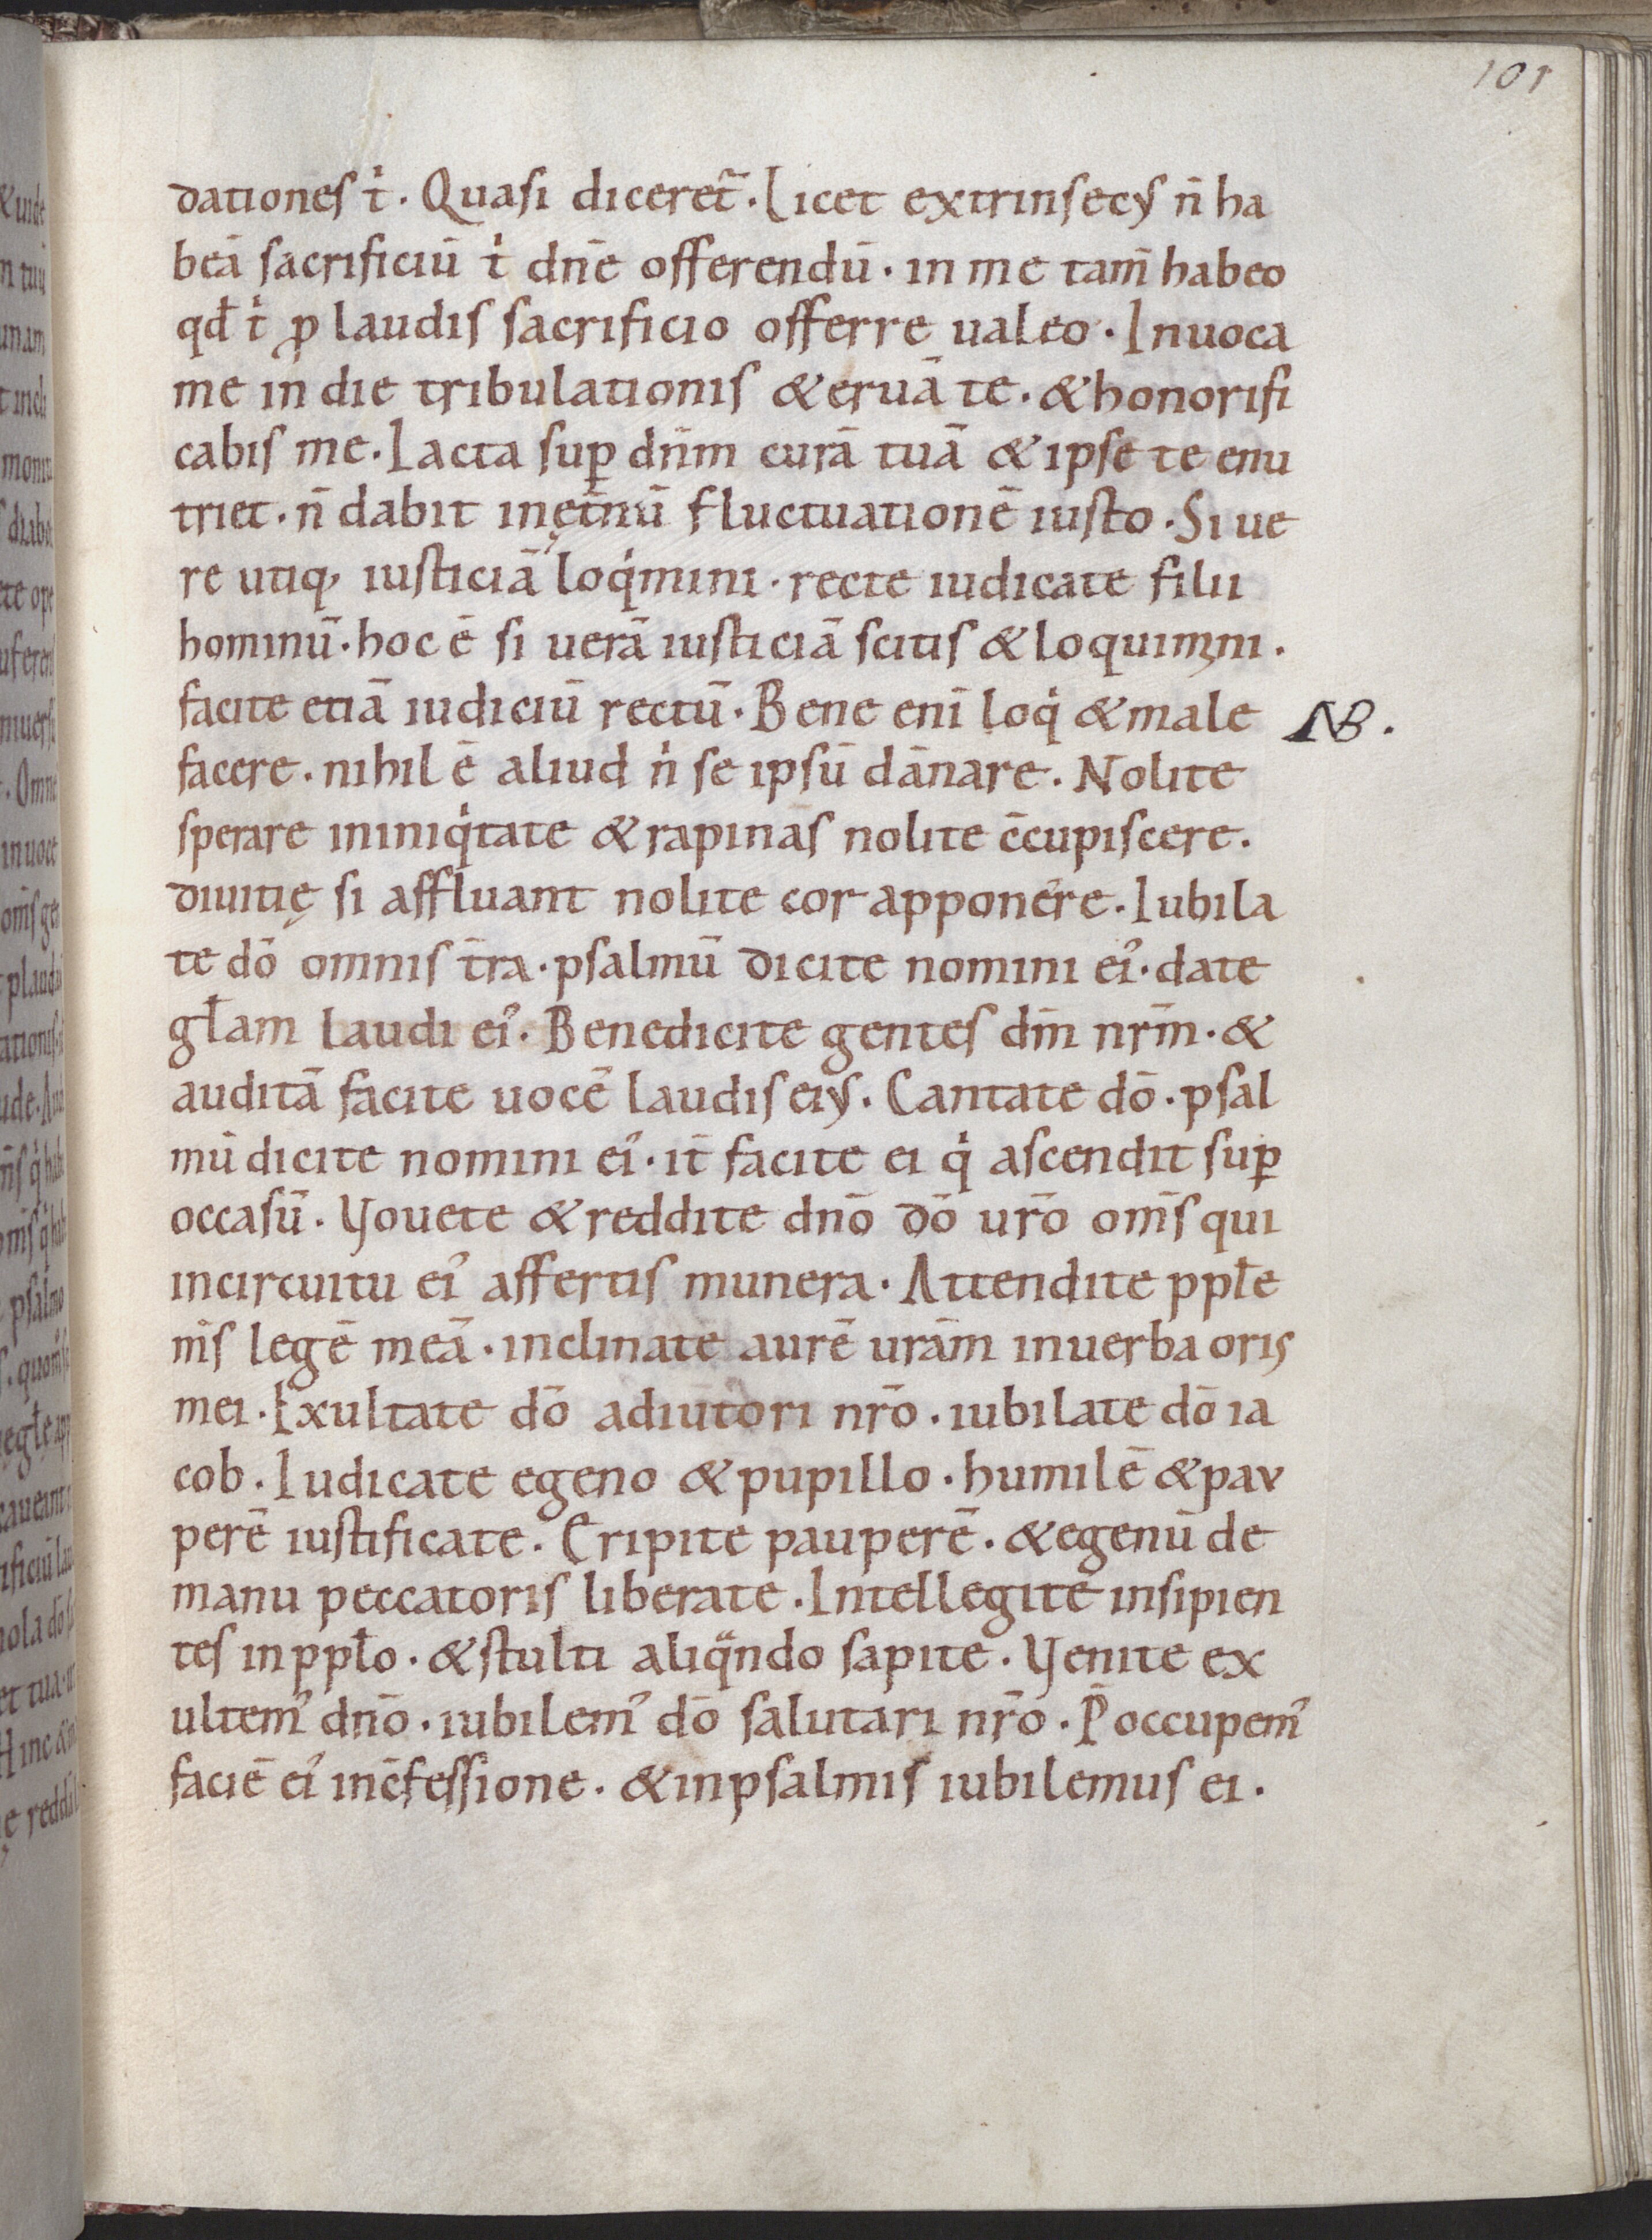 101
dationes t̍. Quasi diceret̄. Licet extrinsecꝰ n̄ ha
beā sacrificiū t̍ dn̄e offerendū. in me tam̄ habeo
qđ t̍ ꝓ laudis sacrificio offerre ualeo. Inuoca
me in die tribulationis & eruā te. & honorifi
cabis me. Iacta suꝑ dn̄m curā tuā & ipse te enu
triet. n̄ dabit inęt̄nū fluctuationē iusto. Si ue
re utiq, iusticiā loq̍mini. recte iudicate filii
hominū. hoc ē si uerā iusticiā scitis & loquimini.
facite etiā iudiciū rectū. Bene eni̅ loq̍ & male
NB.
facere. nihil ē aliud n̍ se ipsū dānare. Nolite
sperare ininiq̍tate & rapinas nolite c̄cupiscere.
diuitię si affluant nolite cor apponere. Iubila
te dō omnis t̄ra. psalmū dicite nomini ei᾿. date
gł̄am laudi ei᾿. Benedicite gentes dm̄ nr̄m. &
auditā facite uocē laudis eiꝰ. Cantate dō. psal
mū dicite nomini ei᾿. it̄ facite ei q̍ ascendit suꝑ
occasū. Uouete & reddite dn̄o dō ur̄o om̄s qui
incircuitu ei᾿ affertis munera. Attendite ppłe
m̄s legē meā. inclinate aurē urām inuerba oris
mei. Exultate dō adiutori nr̄o. iubilate dō ia
cob. Iudicate egeno & pupillo. humilē & pau
perē iustificate. Eripite pauperē. & egenū de
manu peccatoris liberate. Intellegite insipien
tes inppło. & stulti aliqͣndo sapite. Uenite ex
ultem᾿ dn̄o. iubilem᾿ dō salutari nr̄o. P̄occupem᾿
faciē ei᾿ inc̄fessione. & inpsalmis iubilemus ei.